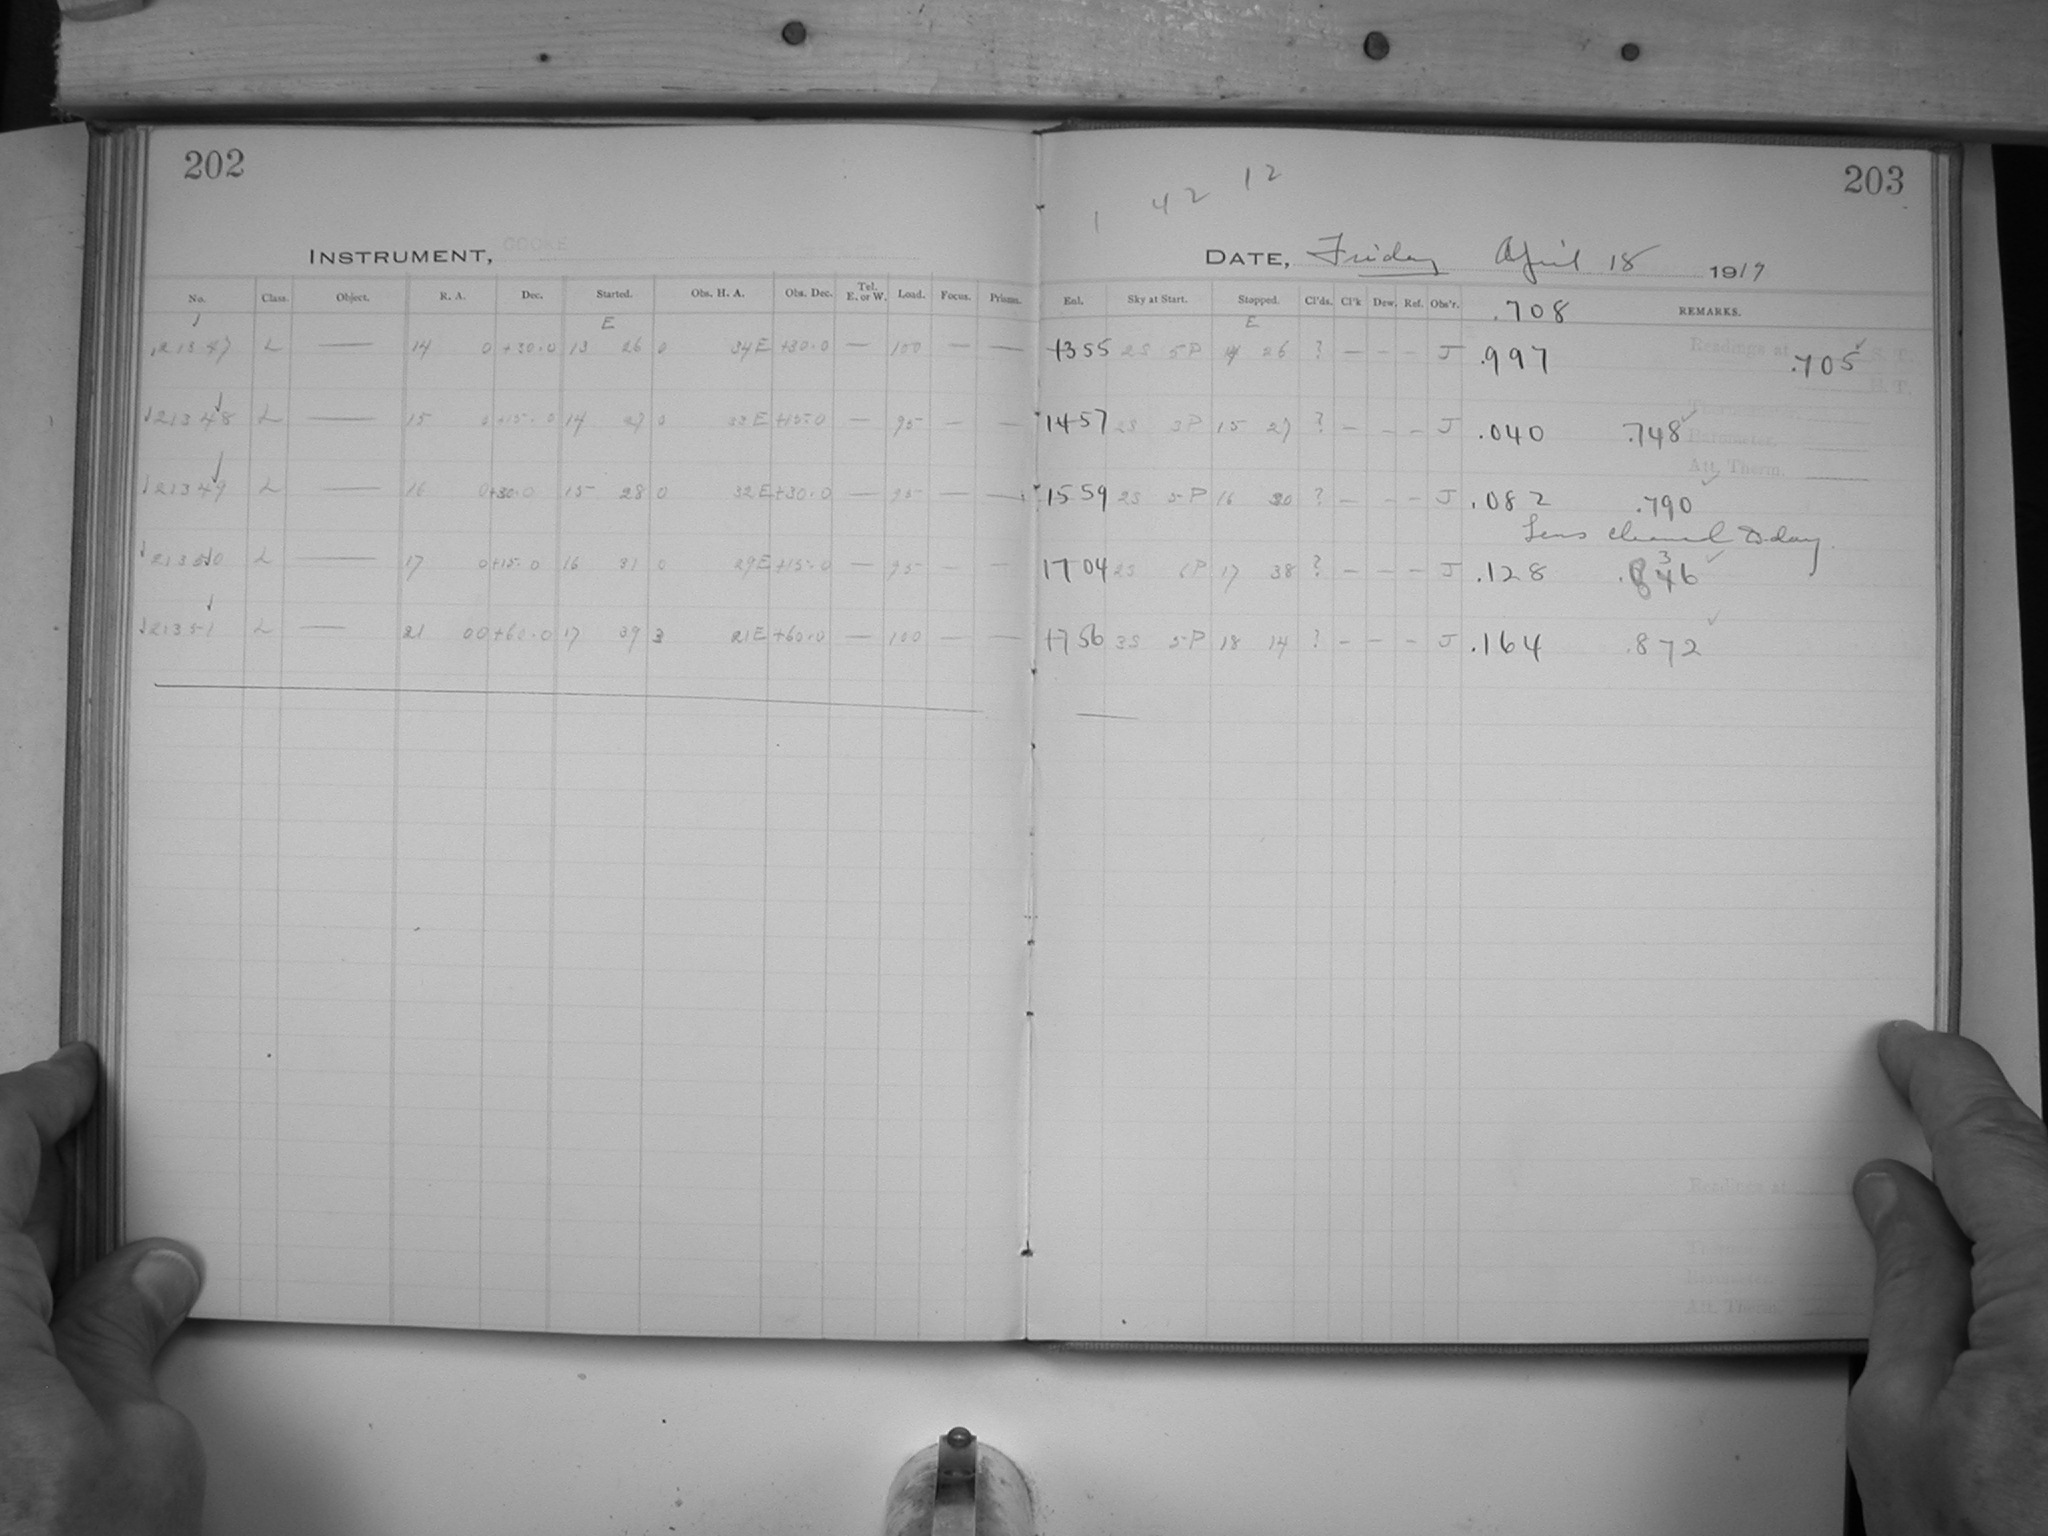 202
INSTRUMENT, COOKE
No. Class. Object. R. A. Dec. Started. Obs. H. A. Obs. Dec. Tel. E. or W. Load. Focus. Prisms.
E
21347 L — 14 0 +30.0 13 26 0 34E +30.0 — 100 — —
21348 L — 15 0 +15.0 14 27 0 33E +15.0 — 95 — —
21349 L — 16 0 +30.0 15 28 0 32E +30.0 — 95 — —
21350 L — 17 0 +15.0 16 31 0 29E +15.0 — 95 — —
21351 L — 21 00 +60.0 17 39 3 21E +60.0 — 100 — —
1 42 12
203
DATE, Friday April 18 1919
Exl. Sky at Start. Stopped. Cl'ds. Cl'k Dew. Ref. Obs'r. .708 REMARKS.
E
1355 2S 5P 14 26 ? — - - J .997 .705
1457 2S 3P 15 27 ? — - - J .040 .748
1559 2S 5P 16 30 ? — - - J .082 .790
Lens cleaned today.
1704 2S 6P 17 38 ? — - - J .128 .836
1756 3S 5P 18 14 ? - - - J .164 .872
Readings at
Barometer.
Att. Therm.
Readings at
Barometer.
Att. Therm.